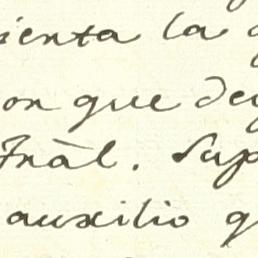 ienta la
on que de
Fnàl. Sup
auxilio q